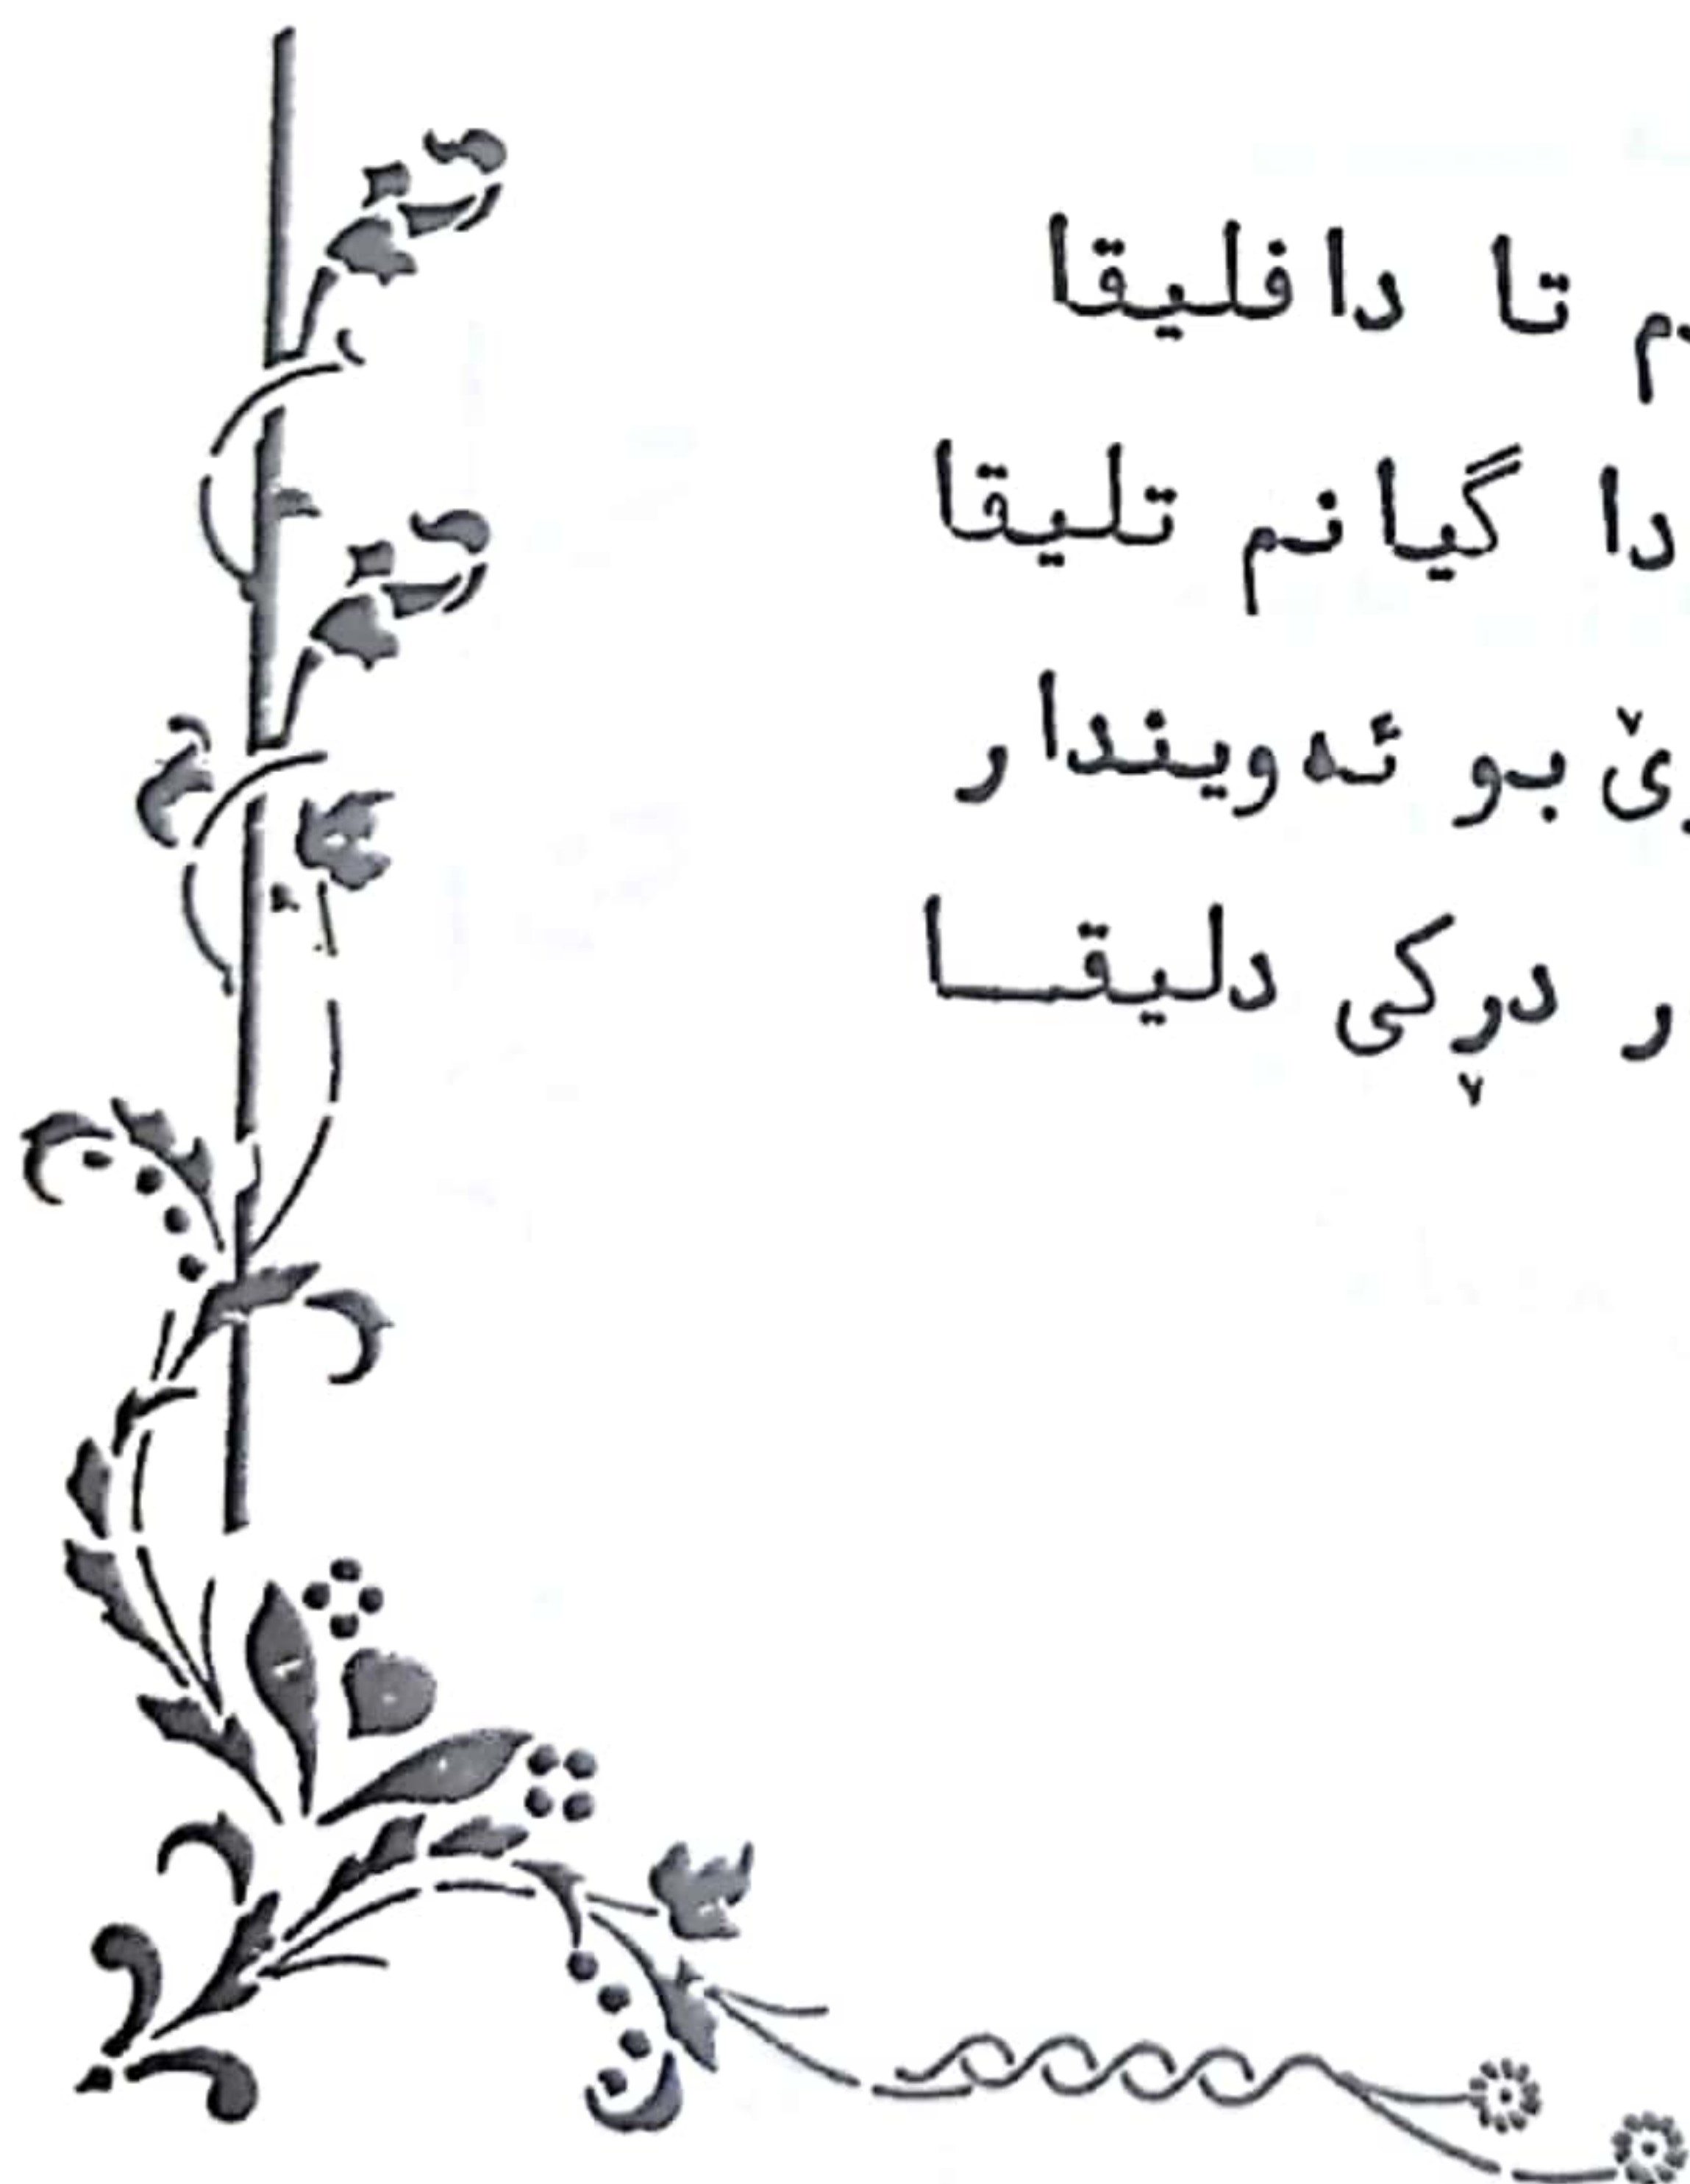 تا دافلیقا
دا گیانم تلیقا
بو ئەویندار
دڕکی دلیقـــا